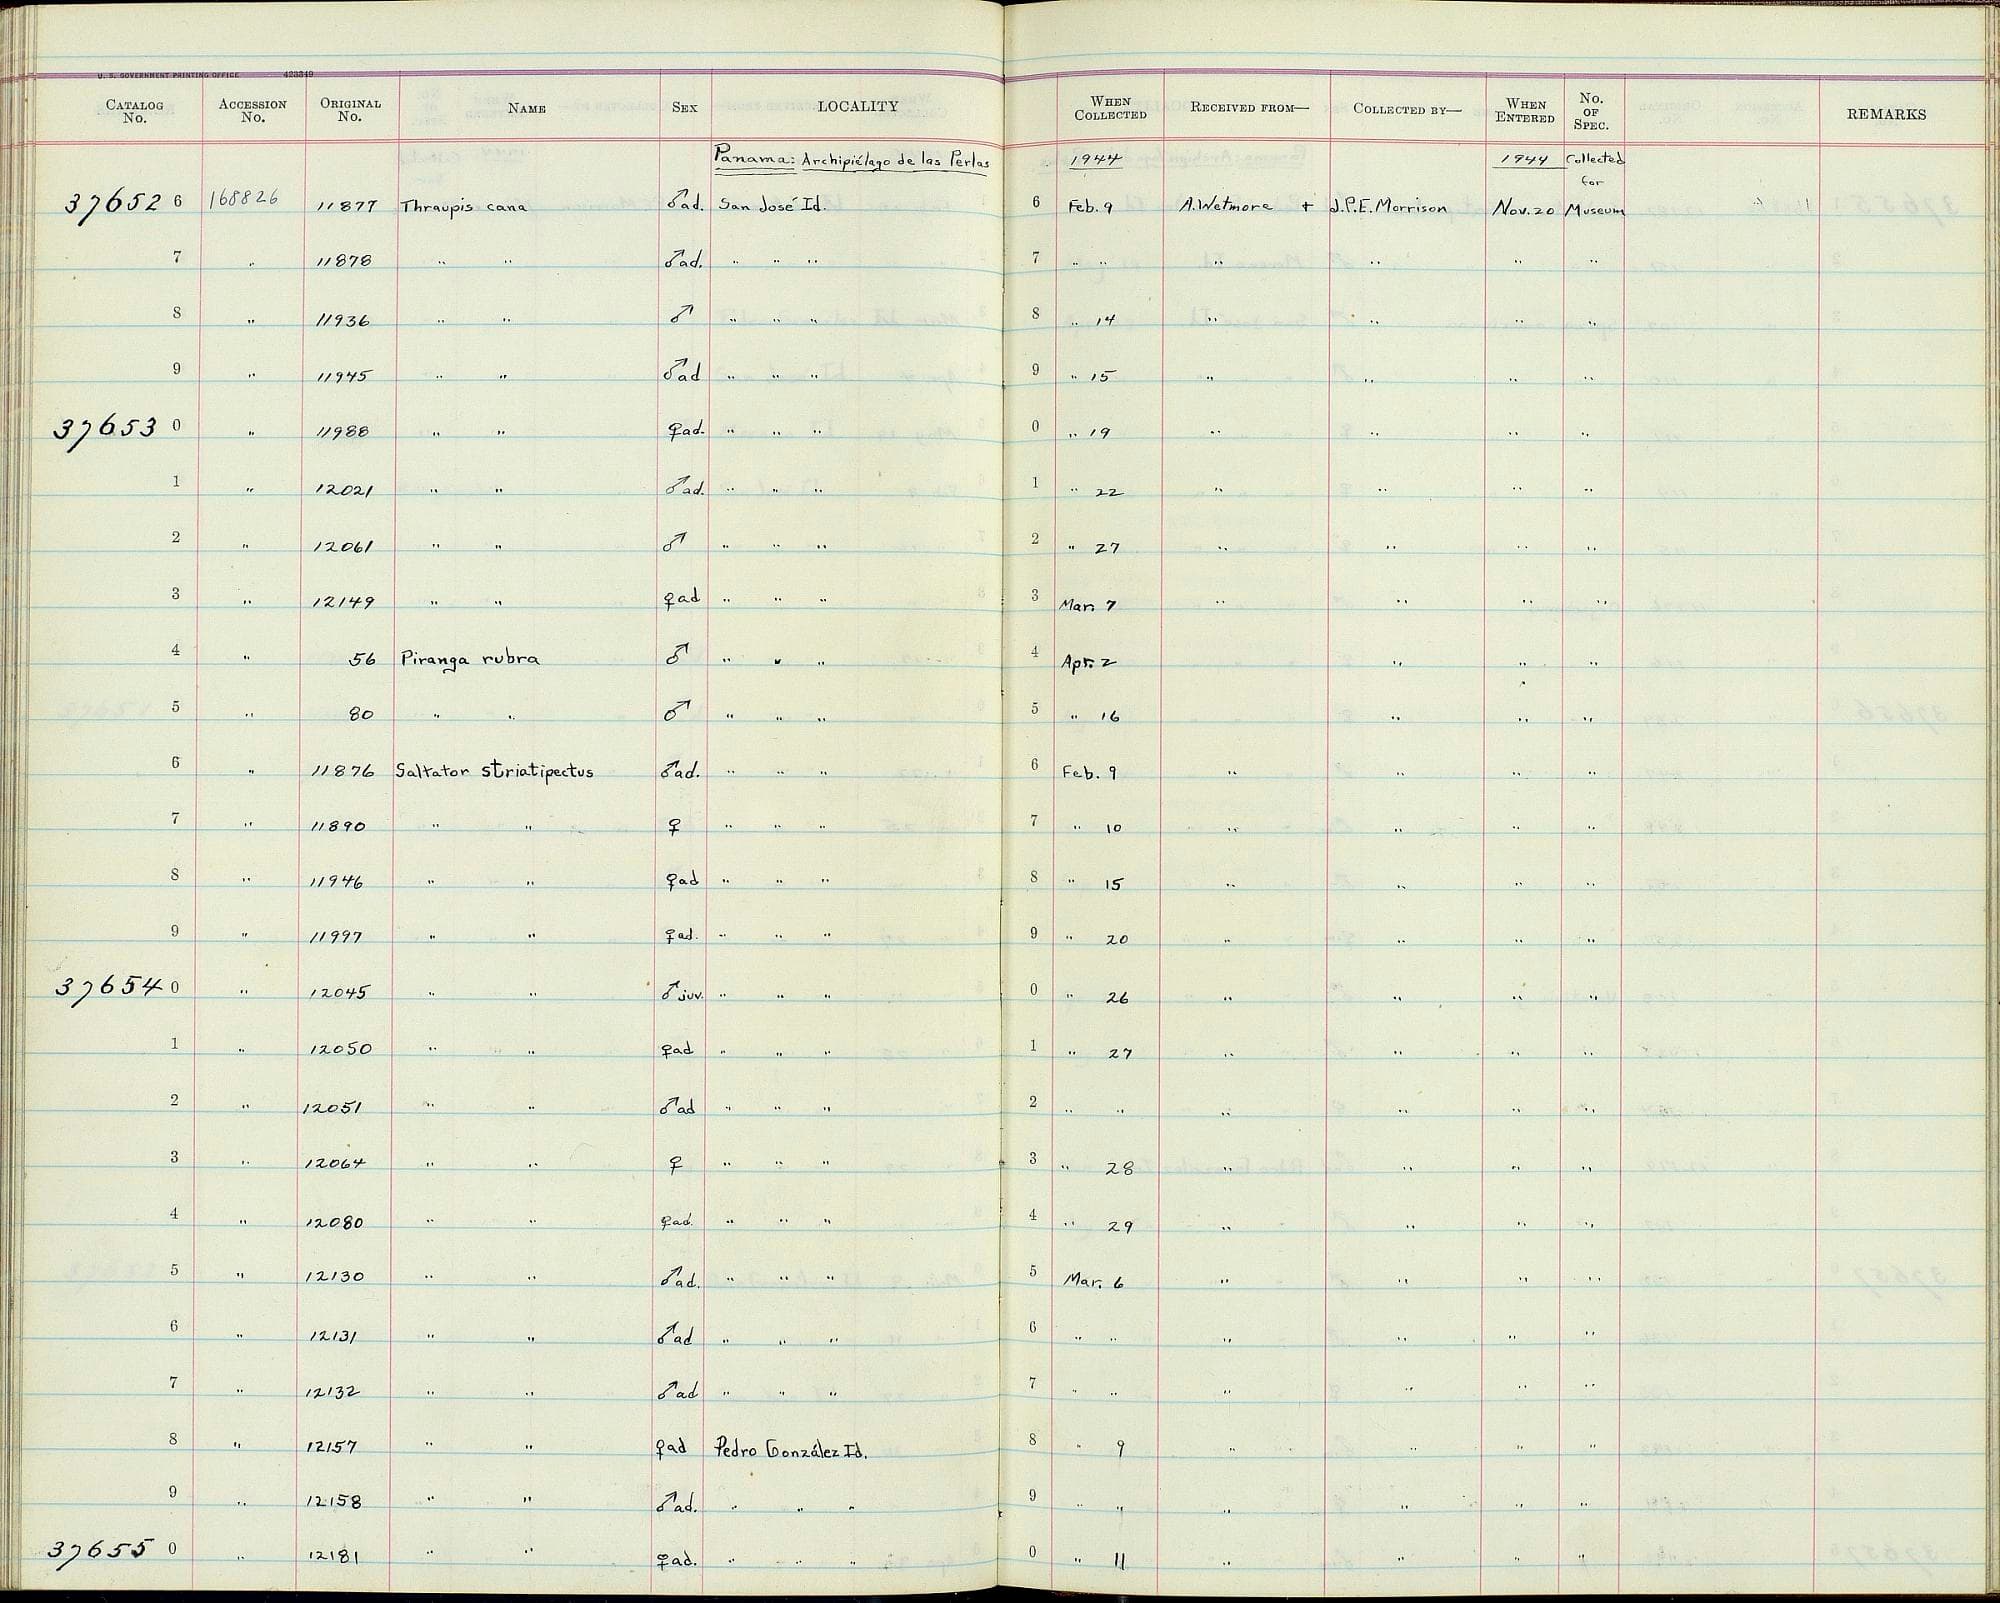 U. S. GOVERNMENT PRINTING OFFICE 423349
CATALOG No. ACCESSION No. ORIGINAL No. NAME SEX LOCALITY WHEN COLLECTED RECEIVED FROM— COLLECTED BY— WHEN ENTERED No. OF SPEC. REMARKS
Panama: Archipiélago de las Perlas 1944 1944 Collected for
37652 6 168826 11877 Thraupis cana ♂ad. San José Id. 6 Feb. 9 A. Wetmore + J.P.E. Morrison Nov. 20 Museum
7 " 11878 " " ♂ad. " " " 7 " " " " " "
8 " 11936 " " ♂ " " " 8 " 14 " " " "
9 " 11945 " " ♂ad " " " 9 " 15 " " " "
37653 0 " 11988 " " ♀ad. " " " 0 " 19 " " " "
1 " 12021 " " ♂ad. " " " 1 " 22 " " " "
2 " 12061 " " ♂ " " " 2 " 27 " " " "
3 " 12149 " " ♀ad " " " 3 Mar. 7 " " " "
4 " 56 Piranga rubra ♂ " " " 4 Apr. 2 " " "
5 " 80 " " ♂ " " " 5 " 16 " " "
6 " 11876 Saltator striatipectus ♂ad. " " " 6 Feb. 9 " " " "
7 " 11890 " " ♀ " " " 7 " 10 " " " "
8 " 11946 " " ♀ad " " " 8 " 15 " " " "
9 " 11997 " " ♀ad. " " " 9 " 20 " " " "
37654 0 " 12045 " " ♂juv. " " " 0 " 26 " " " "
1 " 12050 " " ♀ad " " " 1 " 27 " " " "
2 " 12051 " " ♂ad " " " 2 " " " " " "
3 " 12064 " " ♀ " " " 3 " 28 " " " "
4 " 12080 " " ♀ad. " " " 4 " 29 " " " "
5 " 12130 " " ♂ad. " " " 5 Mar. 6 " " " "
6 " 12131 " " ♂ad " " " 6 " " " " " "
7 " 12132 " " ♂ad " " " 7 " " " " " "
8 " 12157 " " ♀ad Pedro González Id. 8 " 9 " " " "
9 " 12158 " " ♂ad. " " " 9 " " " " " "
37655 0 " 12181 " " ♀ad. " " " 0 " 11 " " " "